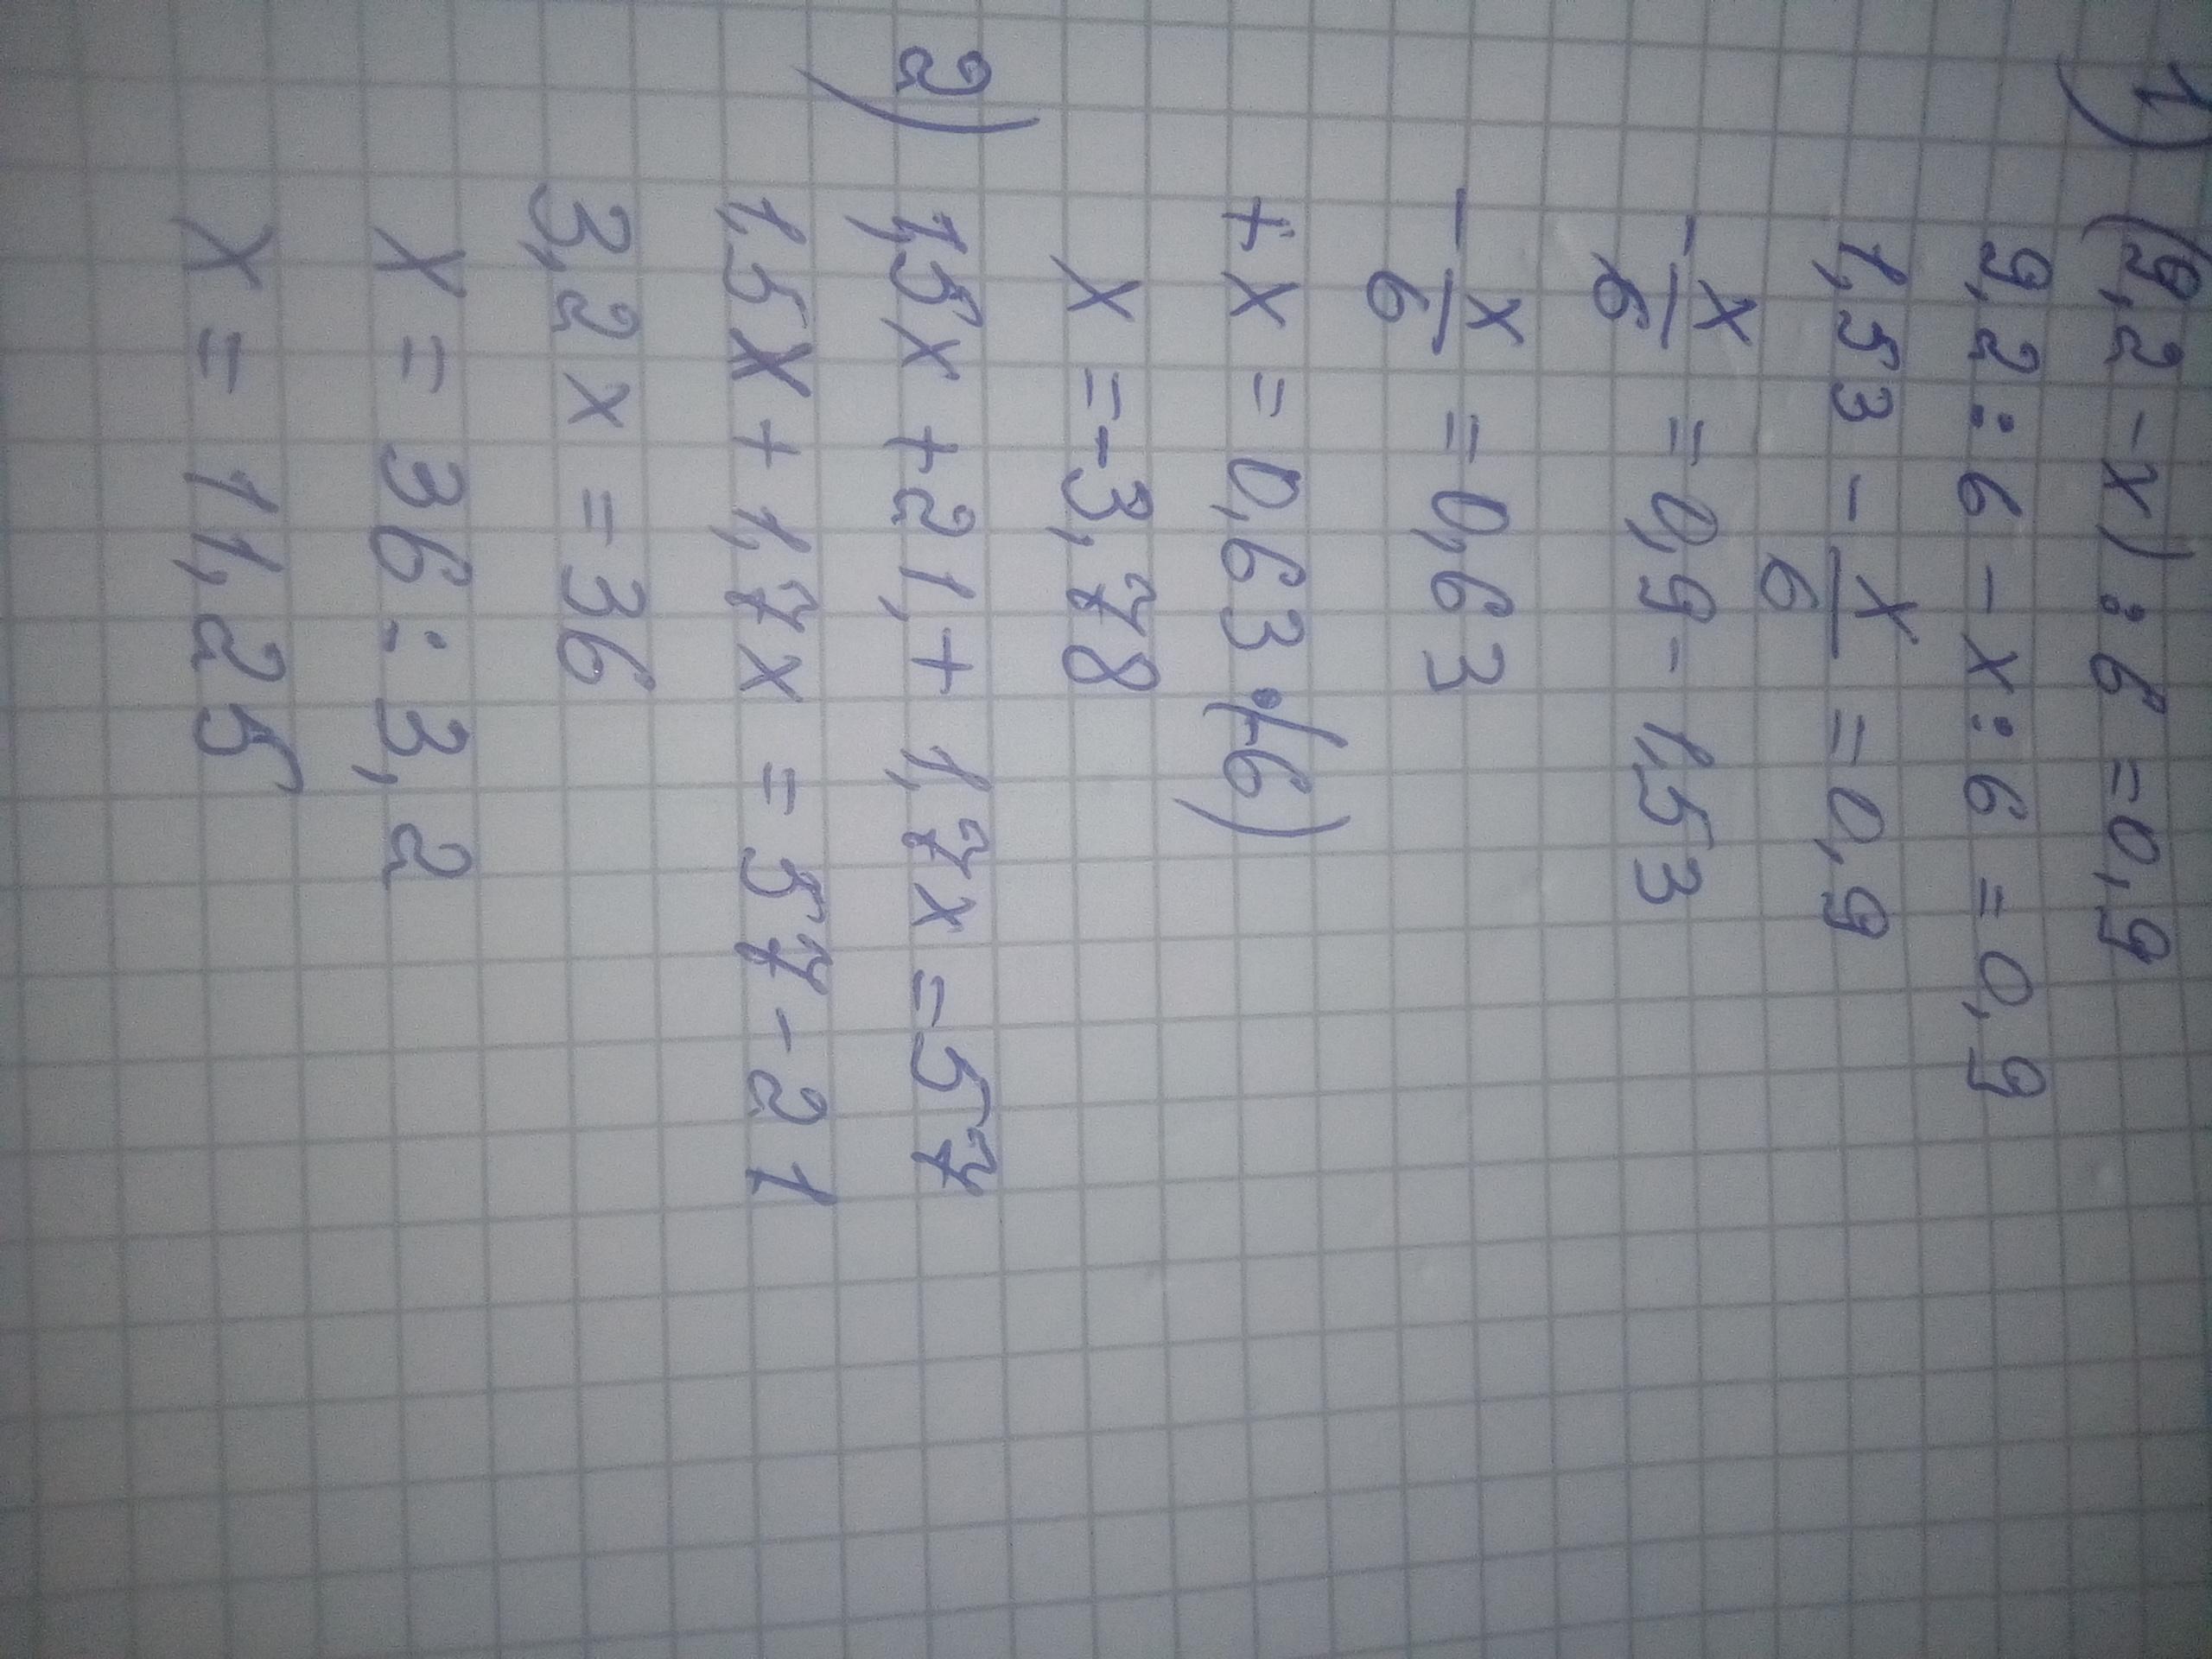 1) (9,2 - x) : 6 = 0,9
9,2 : 6 - x : 6 = 0,9
1,53 - x/6 = 0,9
- x/6 = 0,9 - 1,53
- x/6 = 0,63
+ x = 0,63 · (-6)
x = -3,78
2) 1,5x + 21, + 1,7x = 57
1,5x + 1,7x = 57 - 21
3,2x = 36
x = 36 : 3,2
x = 11,25